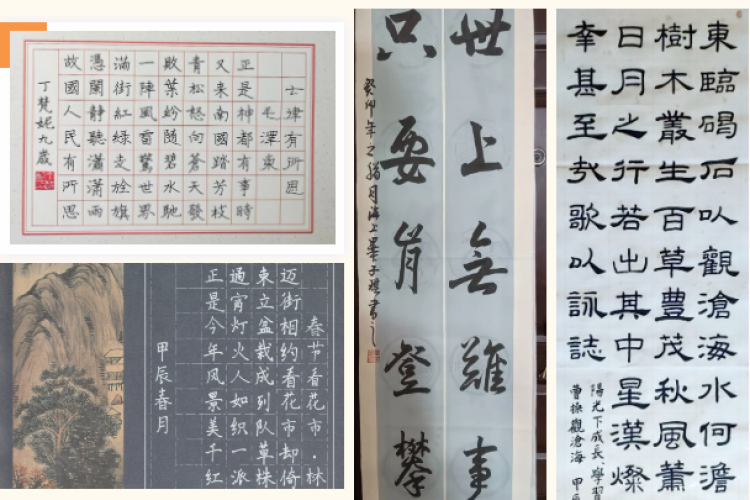 七律有所思
毛澤東
正是神都有事時
又來南國踏芳枝
青松怒向蒼天發
敗葉紛隨碧水馳
一陣風雷驚世界
滿街紅綠走旌旗
憑闌靜聽瀟瀟雨
故國人民有所思
丁梵妮九歲
春节看花市·林
迈街相约看花市却倚
東立盆栽成列队草株
通宵灯火人如织一派
正是今年风景美千红
甲辰春月
世上無難事
只要肯登攀
癸卯年之臘月海上
東臨碣石以觀滄海水何澹
樹木叢生百草豐茂秋風蕭
日月之行若出其中星漢燦
幸甚至哉歌以詠誌
陽光下成長學習
曹操觀滄海 甲